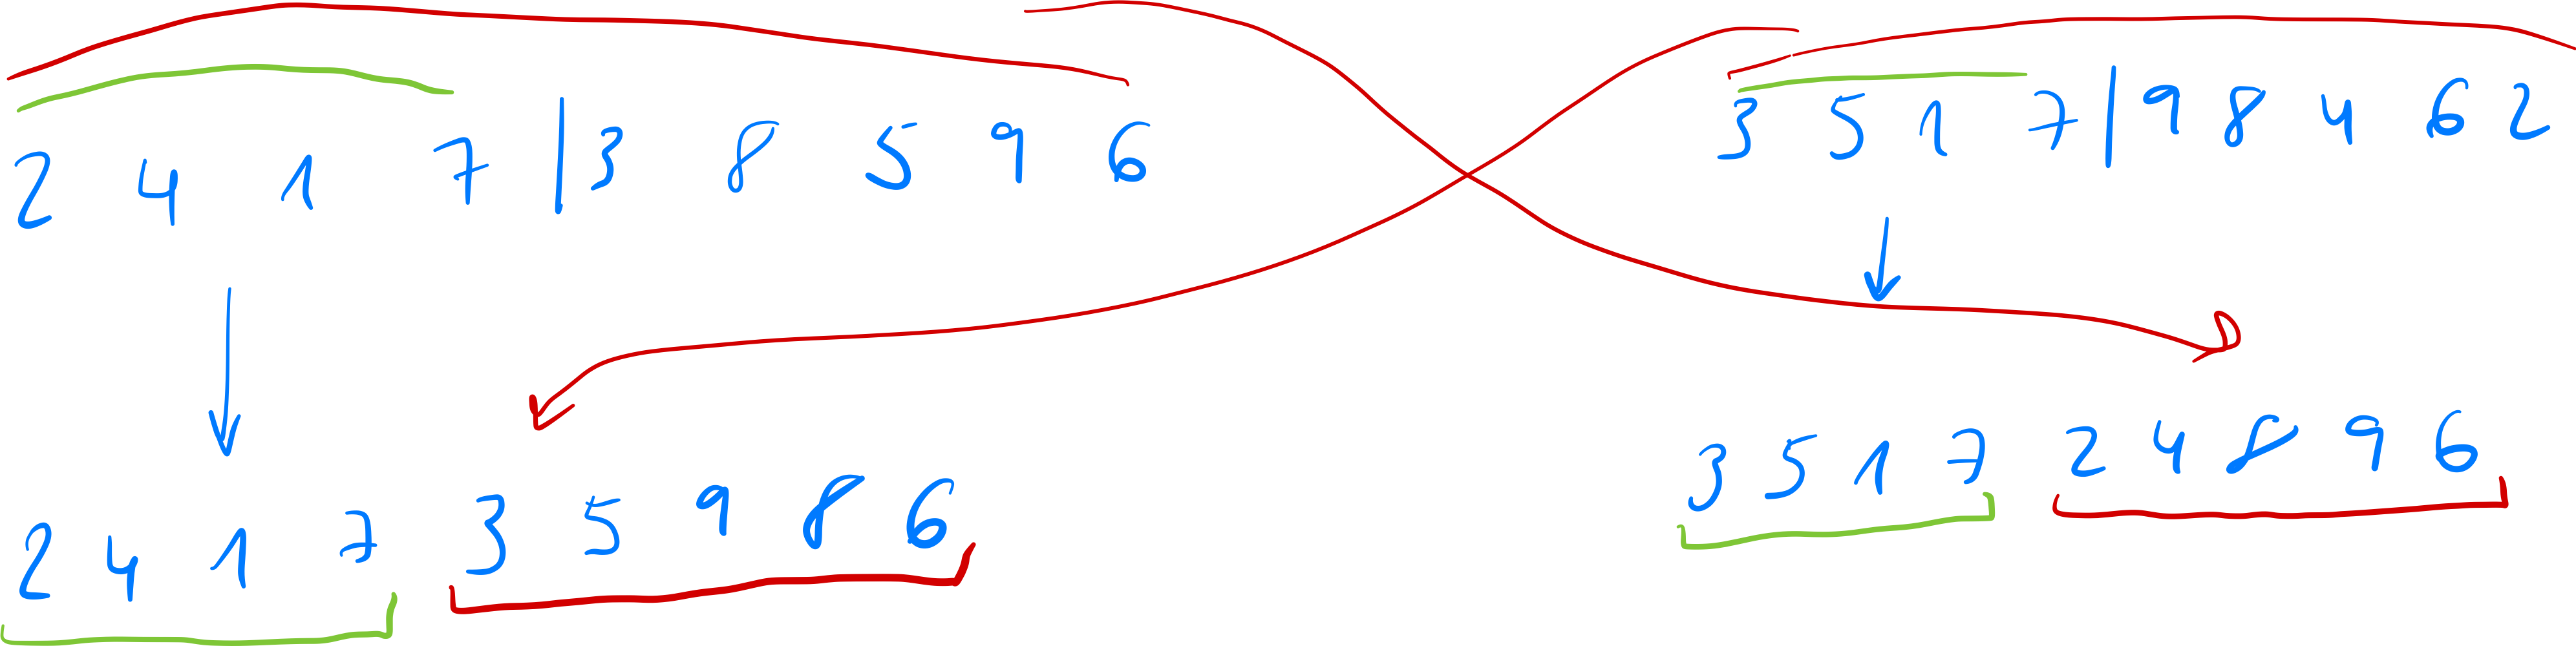 2 4 1 7 | 3 8 5 9 6
3 5 1 7 | 9 8 4 6 2
2 4 1 7 3 5 9 8 6
3 5 1 7 2 4 8 9 6